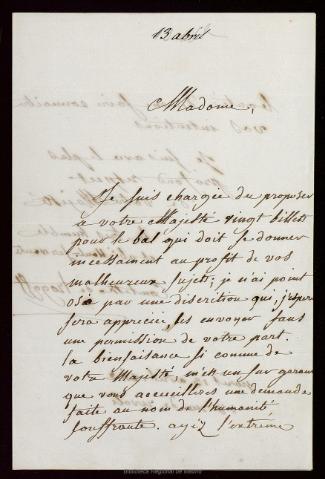 13 abril
Madame,
Je suis chargée de proposer
a votre Majesté vingt billets
pour le bal qui doit se donner
incessament au profit de vos
malheureux sujets; je n'ai point
osé par une discrétion qui, j'espere
sera appreciée, les envoyer sans
une permission de votre part.
la bienfaisance si connue de
votre Majesté m'est un sur garant
que vous accueillirés une demande
faite au nom de l'humanité
souffrante. ayez l'extreme
Biblioteca Regional de Madrid